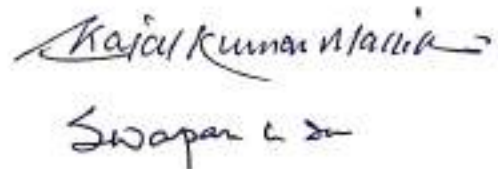 Kajal Kumar Mallik
Swapan